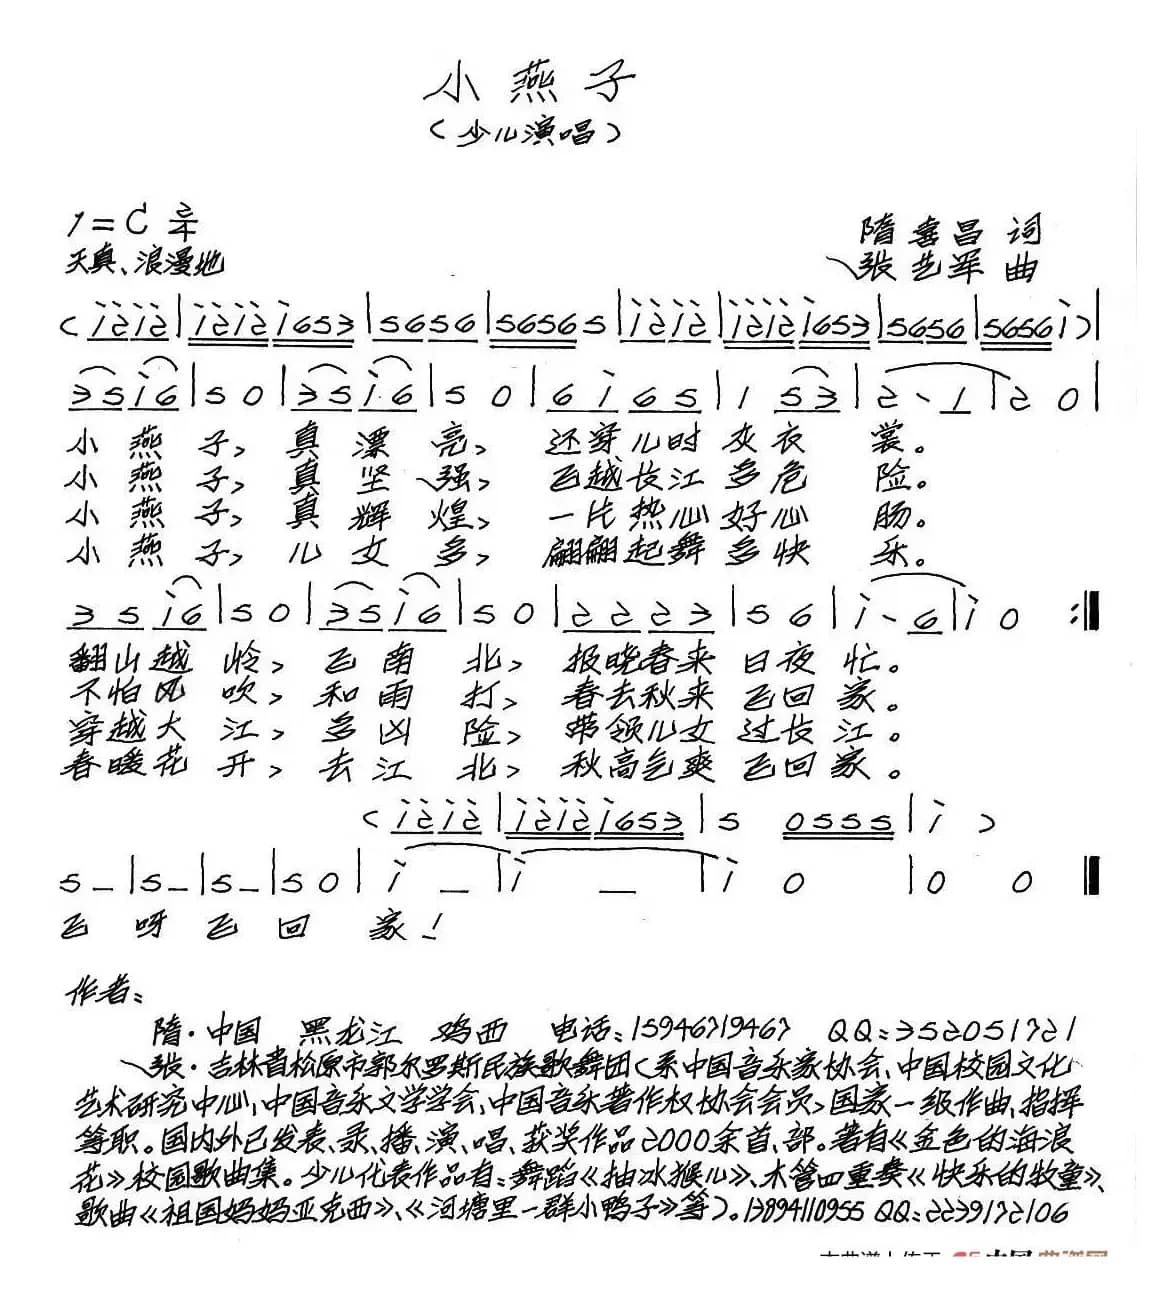 小燕子
（少儿演唱）
1=C 2/4
隋喜昌 词
天真、浪漫地
张艺军 曲
（i2i2|i2i2i653|5656|56565|i2i2|i2i2i653|5656|5656i）|
35i6|50|35i6|50|6i65|1 53|2·1|20|
小燕子，真漂亮，还穿儿时灰衣裳。
小燕子，真坚强，飞越长江多危险。
小燕子，真辉煌，一片热心好心肠。
小燕子，儿女多，翩翩起舞多快乐。
35i6|50|35i6|50|2223|56|i·6|i0:‖
翻山越岭，飞南北，报晓春来日夜忙。
不怕风吹，和雨打，春去秋来飞回家。
穿越大江，多凶险，带领儿女过长江。
春暖花开，去江北，秋高气爽飞回家。
（i2i2|i2i2i653|5 0555|i）
5–|5–|5–|50|i–|i–|i0|00‖
飞呀飞回家！
作者：
隋·中国 黑龙江 鸡西 电话：15946719467 QQ：352051721
张·吉林省松原市郭尔罗斯民族歌舞团（系中国音乐家协会、中国校园文化
艺术研究中心、中国音乐文学学会、中国音乐著作权协会会员，国家一级作曲、指挥
等职。国内外已发表、录、播、演、唱、获奖作品2000余首、部。著有《金色的海浪
花》校园歌曲集。少儿代表作品有：舞蹈《抽冰猴儿》、木管四重奏《快乐的牧童》、
歌曲《祖国妈妈亚克西》、《河塘里一群小鸭子》等）。13894110955 QQ：2239172106